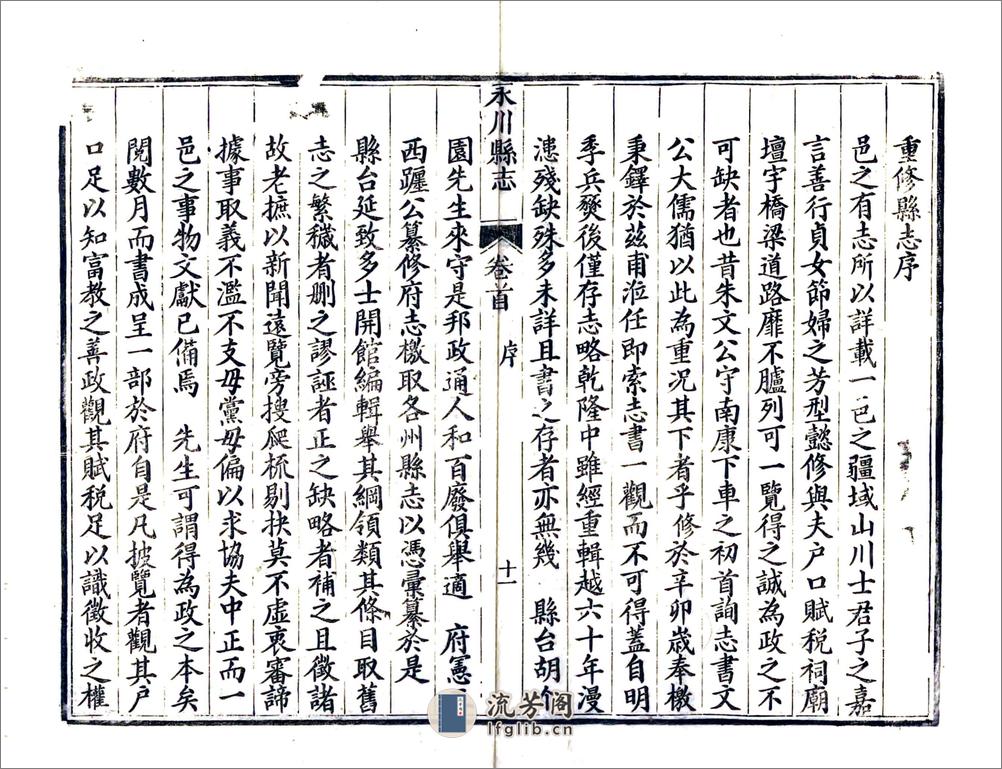 重修縣志序
邑之有志所以詳載一邑之疆域山川士君子之嘉
言善行貞女節婦之芳型懿修與夫户口賦税祠廟
壇宇橋梁道路靡不臚列可一覽得之誠為政之不
可缺者也昔朱文公守南康下車之初首詢志書文
公大儒猶以此為重況其下者乎修於辛卯歲奉檄
秉鐸於兹甫涖任即索志書一觀而不可得蓋自明
季兵燹後僅存志略乾隆中雖經重輯越六十年漫
漶殘缺殊多未詳且書之存者亦無幾 縣台胡
永川縣志 卷首 序 十一
園先生來守是邦政通人和百廢俱舉適 府憲
西躔公纂修府志檄取各州縣志以憑彙纂於是
縣台延致多士開館編輯舉其綱領類其條目取舊
志之繁穢者删之謬誣者正之缺略者補之且徵諸
故老摭以新聞遠覽旁搜爬梳剔抉莫不虚衷審諦
據事取義不濫不支毋黨毋偏以求協夫中正而一
邑之事物文獻已備焉 先生可謂得為政之本矣
閱數月而書成呈一部於府自是凡披覽者觀其户
口足以知富教之善政觀其賦税足以識徵收之權
流芳阁
lfglib.cn